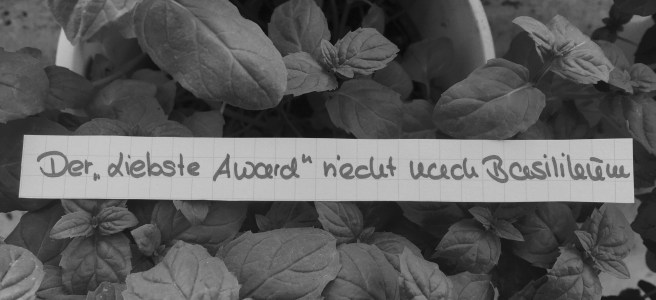 Der „Liebste Award" riecht nach Basilikum